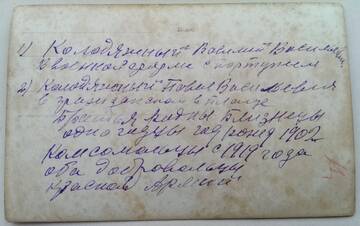 1) Колодяжный Василий Василье
в военной форме с портупеем
2) Колодяжный Павел Васильевич
в гражданском в плаще
Братья Близнецы
год рожд 1902
Комсомольцы с 1919 года
оба добровольцы
Красной Армии